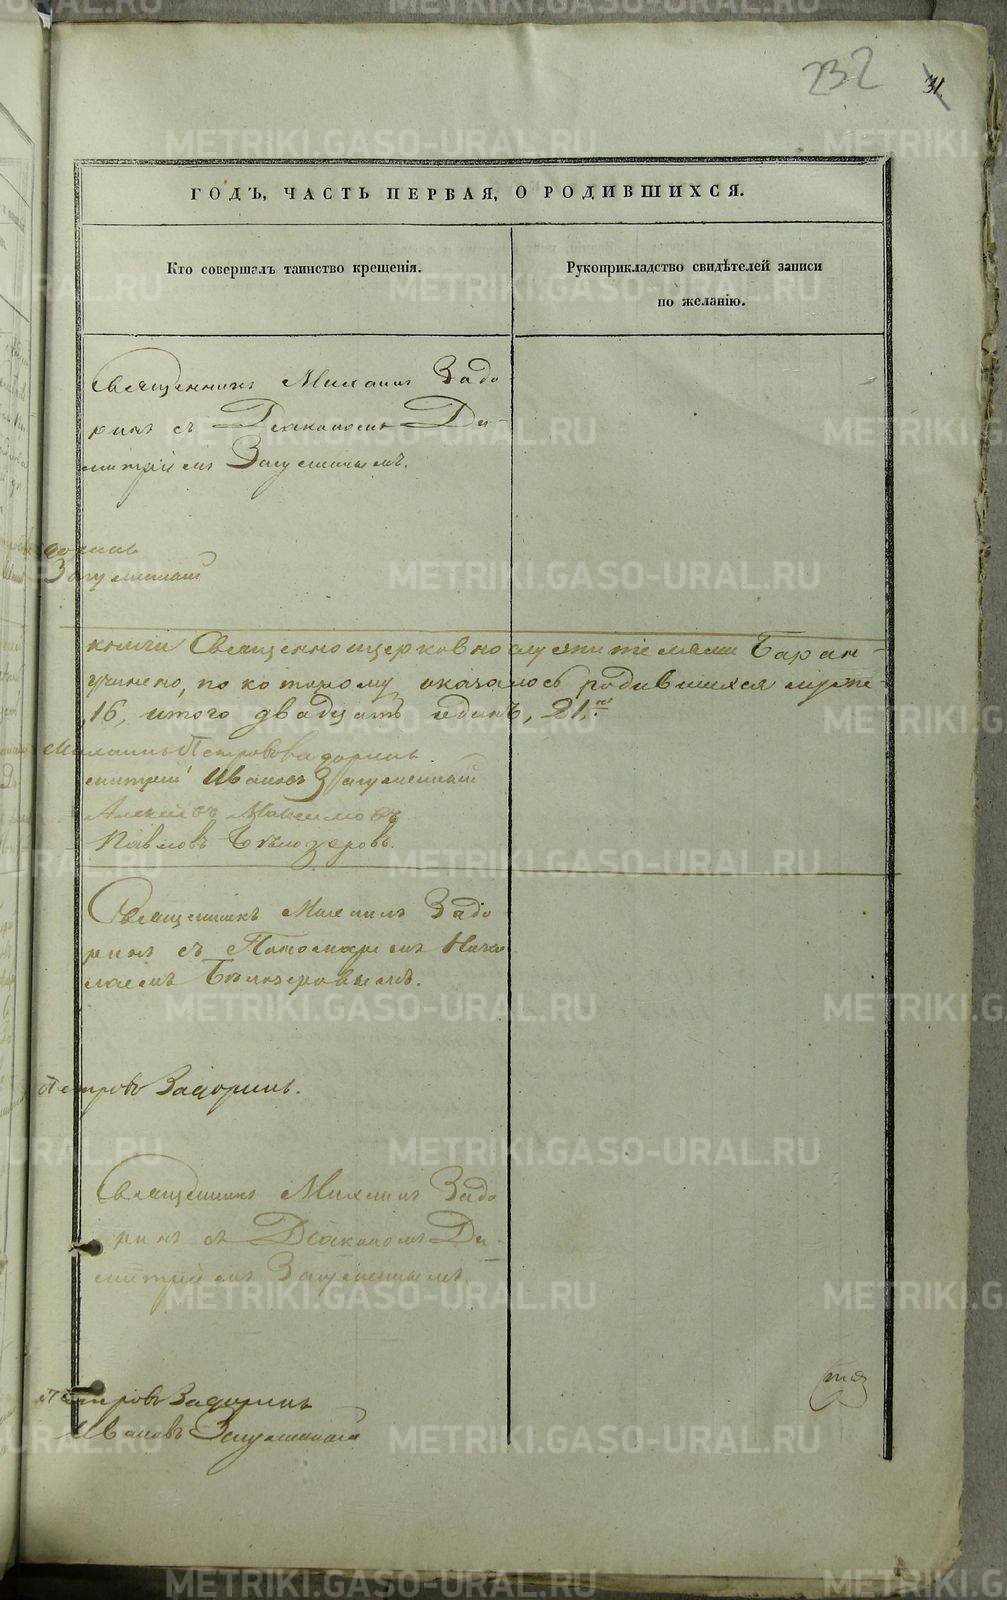 232
31.
ГОДЪ, ЧАСТЬ ПЕРВАЯ, О РОДИВШИХСЯ.
Кто совершалъ таинство крещенія.
Рукоприкладство свидѣтелей записи
по желанію.
Священникъ Михаилъ Задо
ринъ съ Діакономъ Ди-
митріемъ Загуменнымъ.
доринъ
Загуменный
Священноцерковнослужителями Баран-
учинено, по которому оказалось родившихся муже
16, итого двадцать единъ, 21.
Михаилъ Петровъ Задоринъ
митрий Ивановъ Загуменный
Алексѣевъ Максимовъ
Павловъ Бѣлозеровъ.
Священникъ Михаилъ Задо
ринъ съ Пономаремъ Нико
лаемъ Бѣлозеровымъ.
Петровъ Задоринъ.
Священникъ Михаилъ Задо
ринъ съ Діакономъ Ди-
митріемъ Загуменнымъ.
Петровъ Задоринъ
Ивановъ Загуменный
METRIKI.GASO-URAL.RU